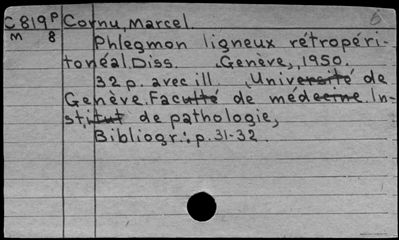 C819P Cornu, Marcel.
M 8 Phlegmon ligneux rétropéri-
tonéal Diss. Genève, 1950.
32 p. avec ill. (Université de
Genève. Faculté de médecine. In-
stitut de pathologie,
Bibliogr.: p. 31-32.